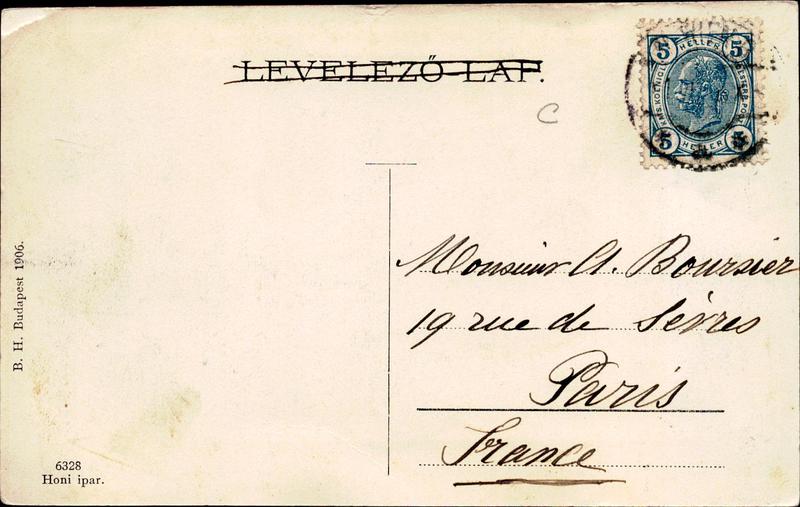 LEVELEZŐ-LAP.
5 HELLER 5
5 HELLER 5
C
Monsieur A. Boursier
19 rue de Sèvres
Paris
France
B. H. Budapest 1906.
6328
Honi ipar.